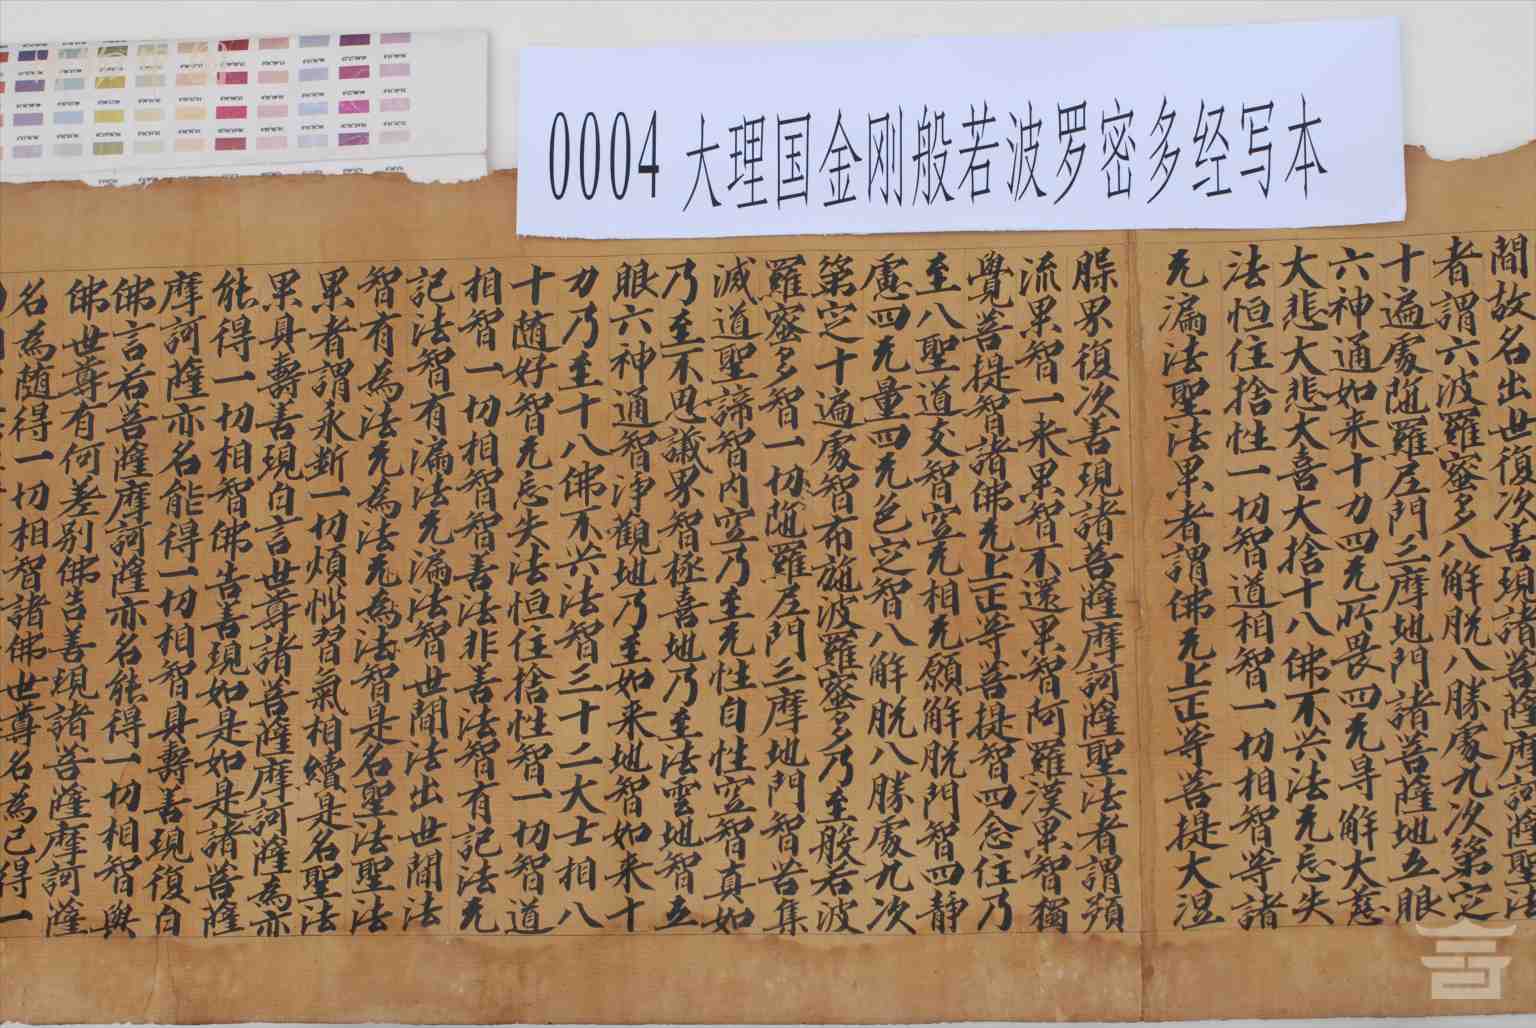 0004 大理国金刚般若波罗密多经写本
間故名出世復次善現諸菩薩摩訶薩聖法
者謂六波羅蜜多八解脱八勝處九次第定
十遍處陁羅尼門三摩地門諸菩薩地五眼
六神通如来十力四无所畏四无㝵解大慈
大悲大悲大喜大捨十八佛不共法无忘失
法恒住捨性一切智道相智一切相智等諸
无漏法聖法果者謂佛无上正等菩提大涅
果復次善現諸菩薩摩訶薩聖法者謂預
流果智一来果智不還果智阿羅漢果智獨
覺菩提智諸佛无上正等菩提智四念住乃
至八聖道支智空无相无願解脱門智四静
慮四无量四无色定智八解脱八勝處九次
第定十遍處智布施波羅蜜多乃至般若波
羅蜜多智一切陁羅尼門三摩地門智苦集
滅道聖諦智内空乃至无性自性空智真如
乃至不思議界智極喜地乃至法雲地智五
眼六神通智淨觀地乃至如来地智如来十
力乃至十八佛不共法智三十二大士相八
十随好智无忘失法恒住捨性智一切智道
相智一切相智智善法非善法智有記法无
記法智有漏法无漏法智世間法出世間法
智有為法无為法无為法智是名聖法聖法
果者謂永断一切煩惱習氣相續是名聖法
果具壽善現白言世尊諸菩薩摩訶薩為亦
能得一切相智佛告善現如是如是諸菩薩
摩訶薩亦名能得一切相智具壽善現復白
佛言若菩薩摩訶薩亦名能得一切相智與
佛世尊有何差别佛告善現諸菩薩摩訶薩
名為随得一切相智諸佛世尊名為已得一